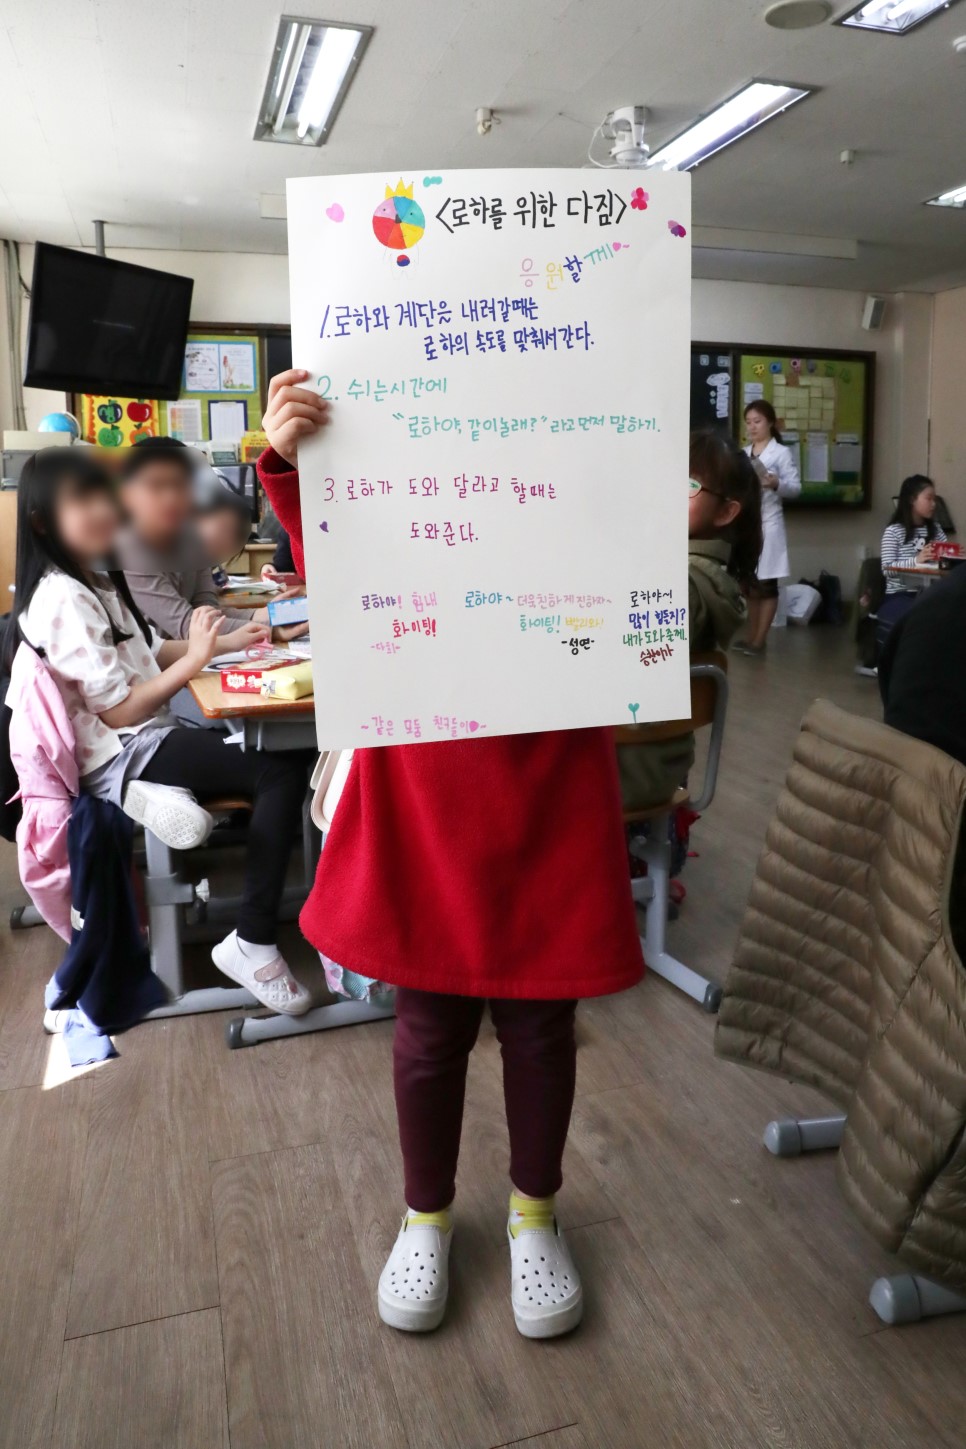 <로하를 위한 다짐>
응원할께~
1. 로하와 계단을 내려갈때는
로하의 속도를 맞춰서간다.
2. 쉬는시간에
"로하야, 같이놀래?" 라고먼저 말하기.
3. 로하가 도와 달라고 할때는
도와준다.
로하야! 힘내
화이팅!
로하야~ 더욱친하게지내자~
화이팅! 빨리와!
-성연-
로하야~!
많이 힘들지?
내가도와줄께.
승찬이가
~같은 모둠 친구들이~